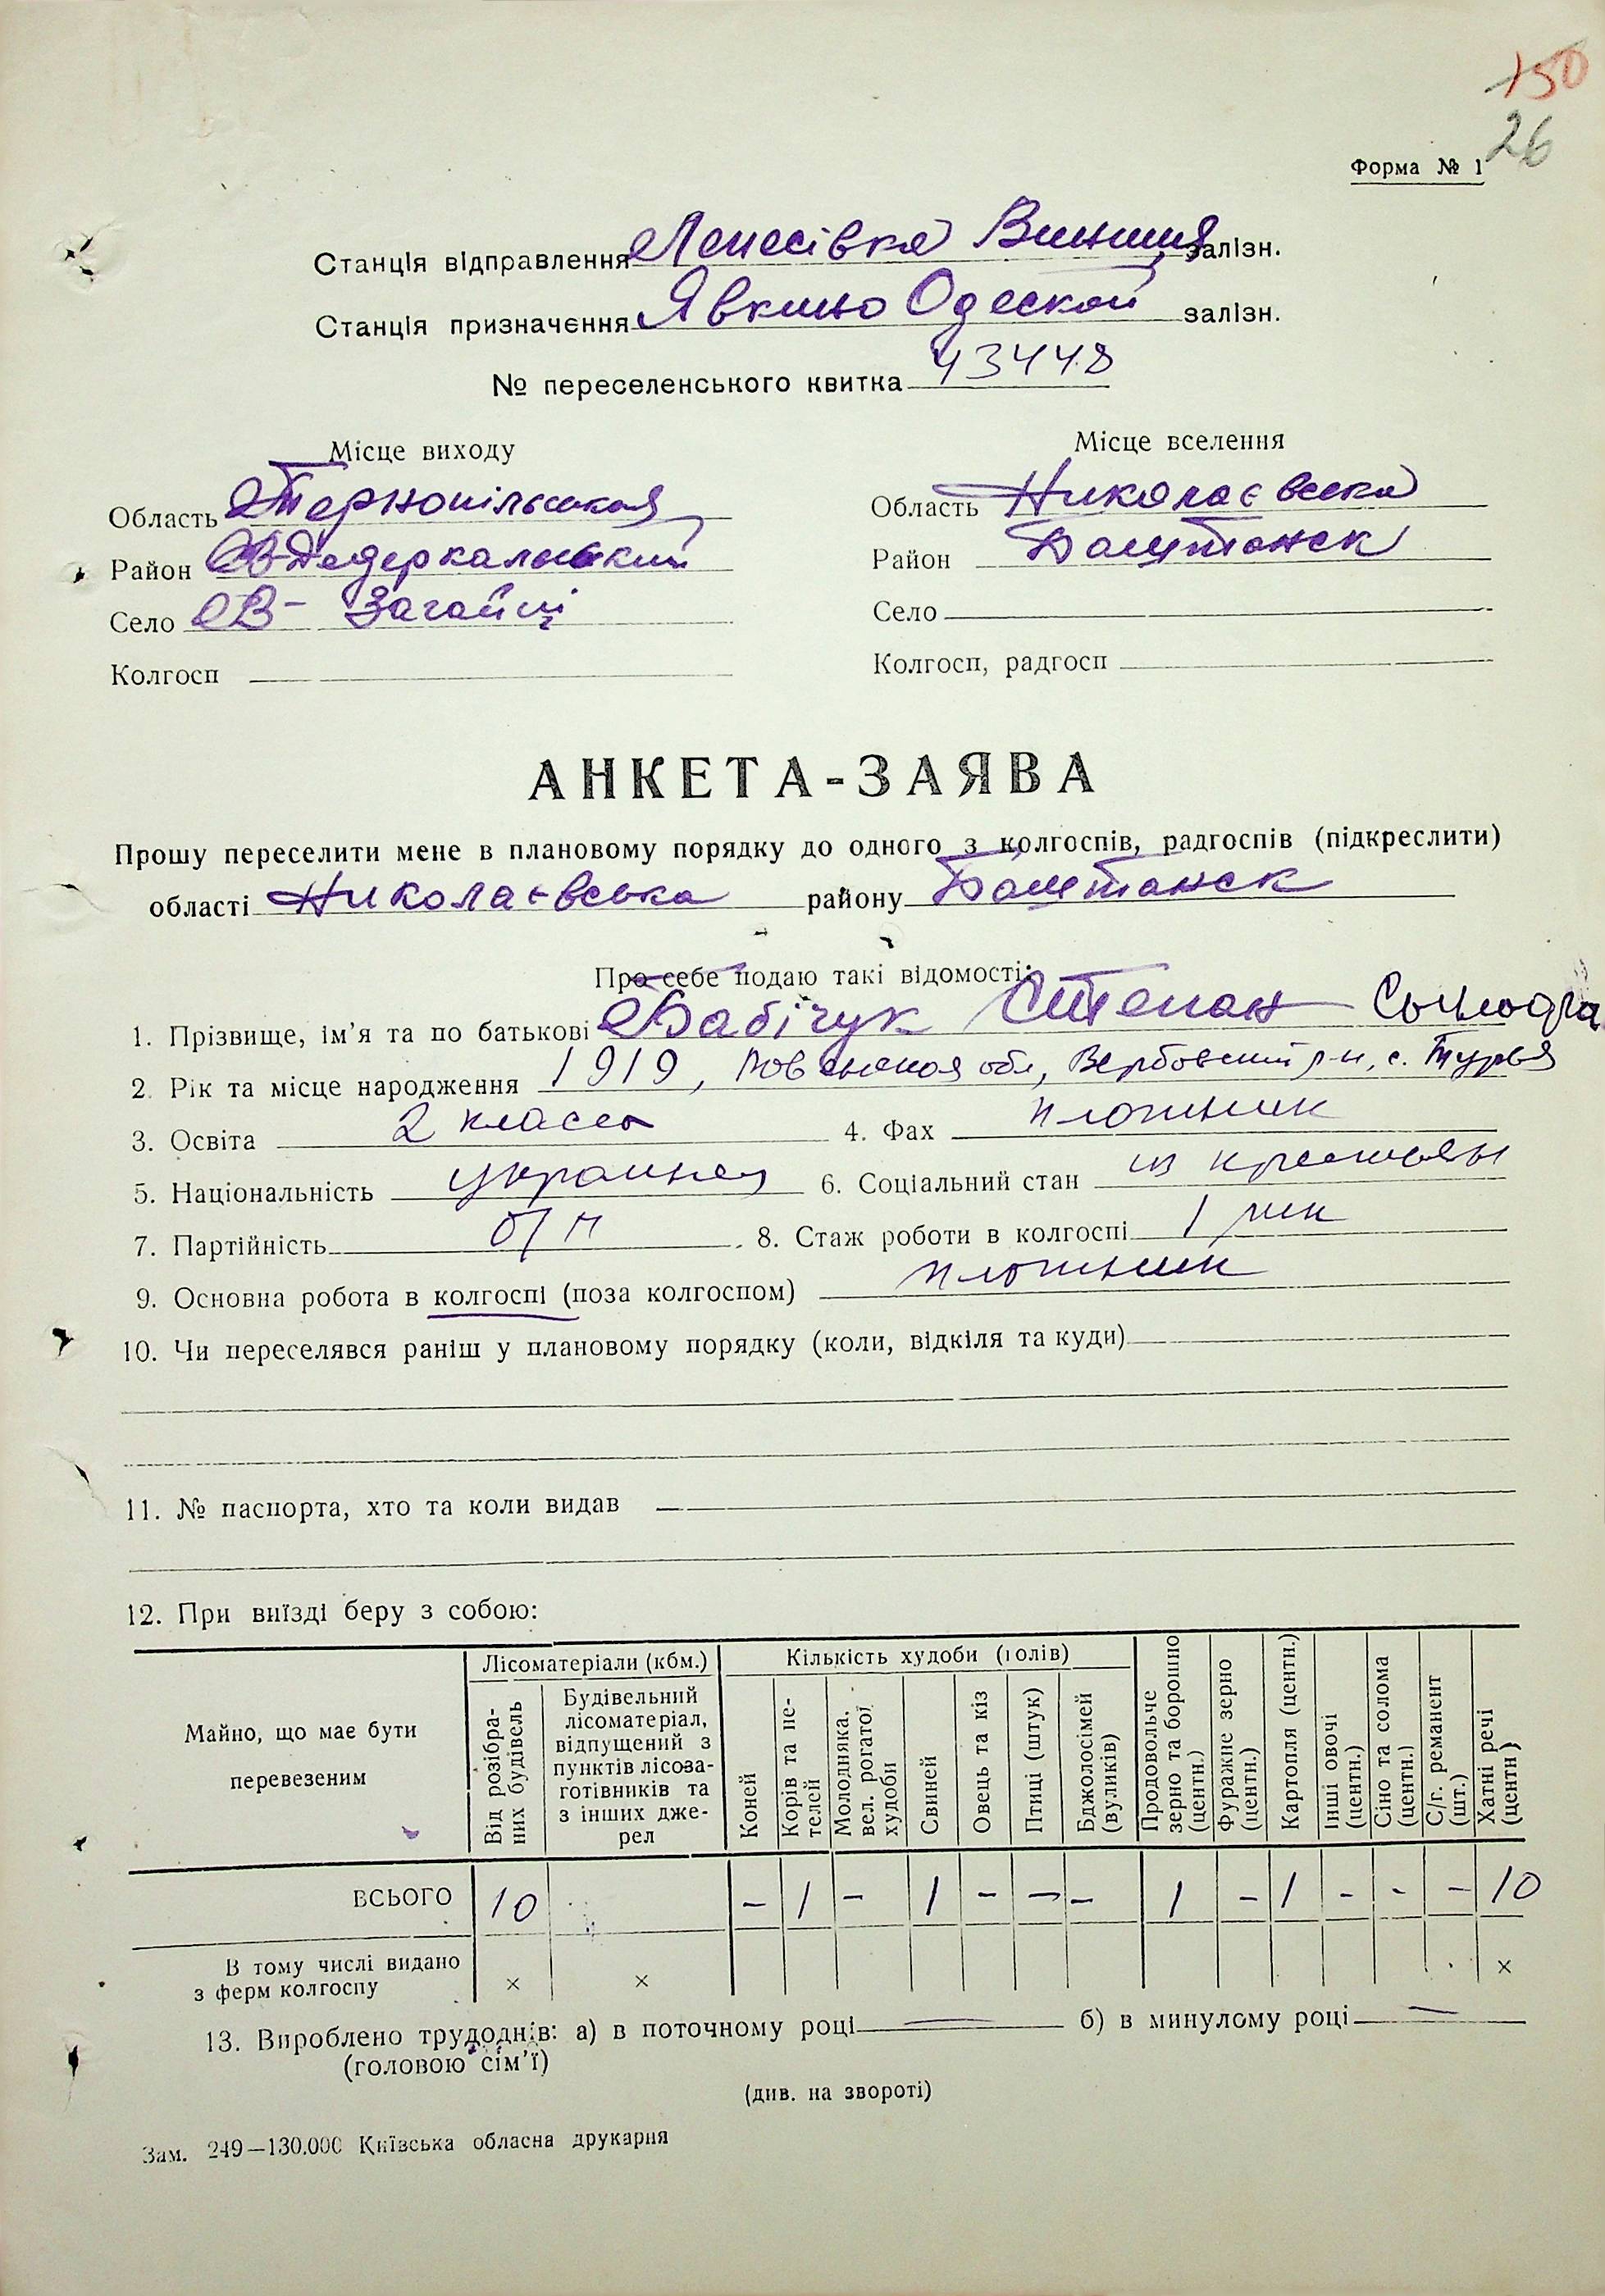 150
26
Форма № 1
Станція відправлення Лепесівка Винниця залізн.
Станція призначення Явкино Одеской залізн.
№ переселенського квитка 43448
Місце виходу
Область Тернопільская
Район В-Дедеркальский
Село В- Загайці
Колгосп
Місце вселення
Область Николаєвска
Район Баштанск
Село
Колгосп, радгосп
АНКЕТА-ЗАЯВА
Прошу переселити мене в плановому порядку до одного з колгоспів, радгоспів (підкреслити)
області Николаєвська району Баштанск
Про себе подаю такі відомості:
1. Прізвище, ім'я та по батькові Бабічук Степан
2. Рік та місце народження 1919, Ровенская обл, Вербовский р-н, с. Турья
3. Освіта 2 класса 4. Фах плотник
5. Національність украинец 6. Соціальний стан из крестьян
7. Партійність б/п 8. Стаж роботи в колгоспі 1 рик
9. Основна робота в колгоспі (поза колгоспом) плотник
10. Чи переселявся раніш у плановому порядку (коли, відкіля та куди)
11. № паспорта, хто та коли видав —
12. При виїзді беру з собою:
Майно, що має бути перевезеним
Лісоматеріали (кбм.)
Від розібраних будівель
Будівельний лісоматеріал, відпущений з пунктів лісозаготівників та з інших джерел
Кількість худоби (голів)
Коней
Корів та нетелей
Молодняка, вел. рогатої худоби
Свиней
Овець та кіз
Птиці (штук)
Бджолосімей (вуликів)
Продовольче зерно та борошно (центн.)
Фуражне зерно (центн.)
Картопля (центн.)
Інші овочі (центн.)
Сіно та солома (центн.)
С/г. реманент (шт.)
Хатні речі (центн)
ВСЬОГО 10 – 1 – 1 – – – 1 – 1 – - – 10
В тому числі видано з ферм колгоспу × × ×
13. Вироблено трудоднів: а) в поточному році — б) в минулому році —
(головою сім'ї)
(див. на звороті)
Зам. 249—130.000 Київська обласна друкарня